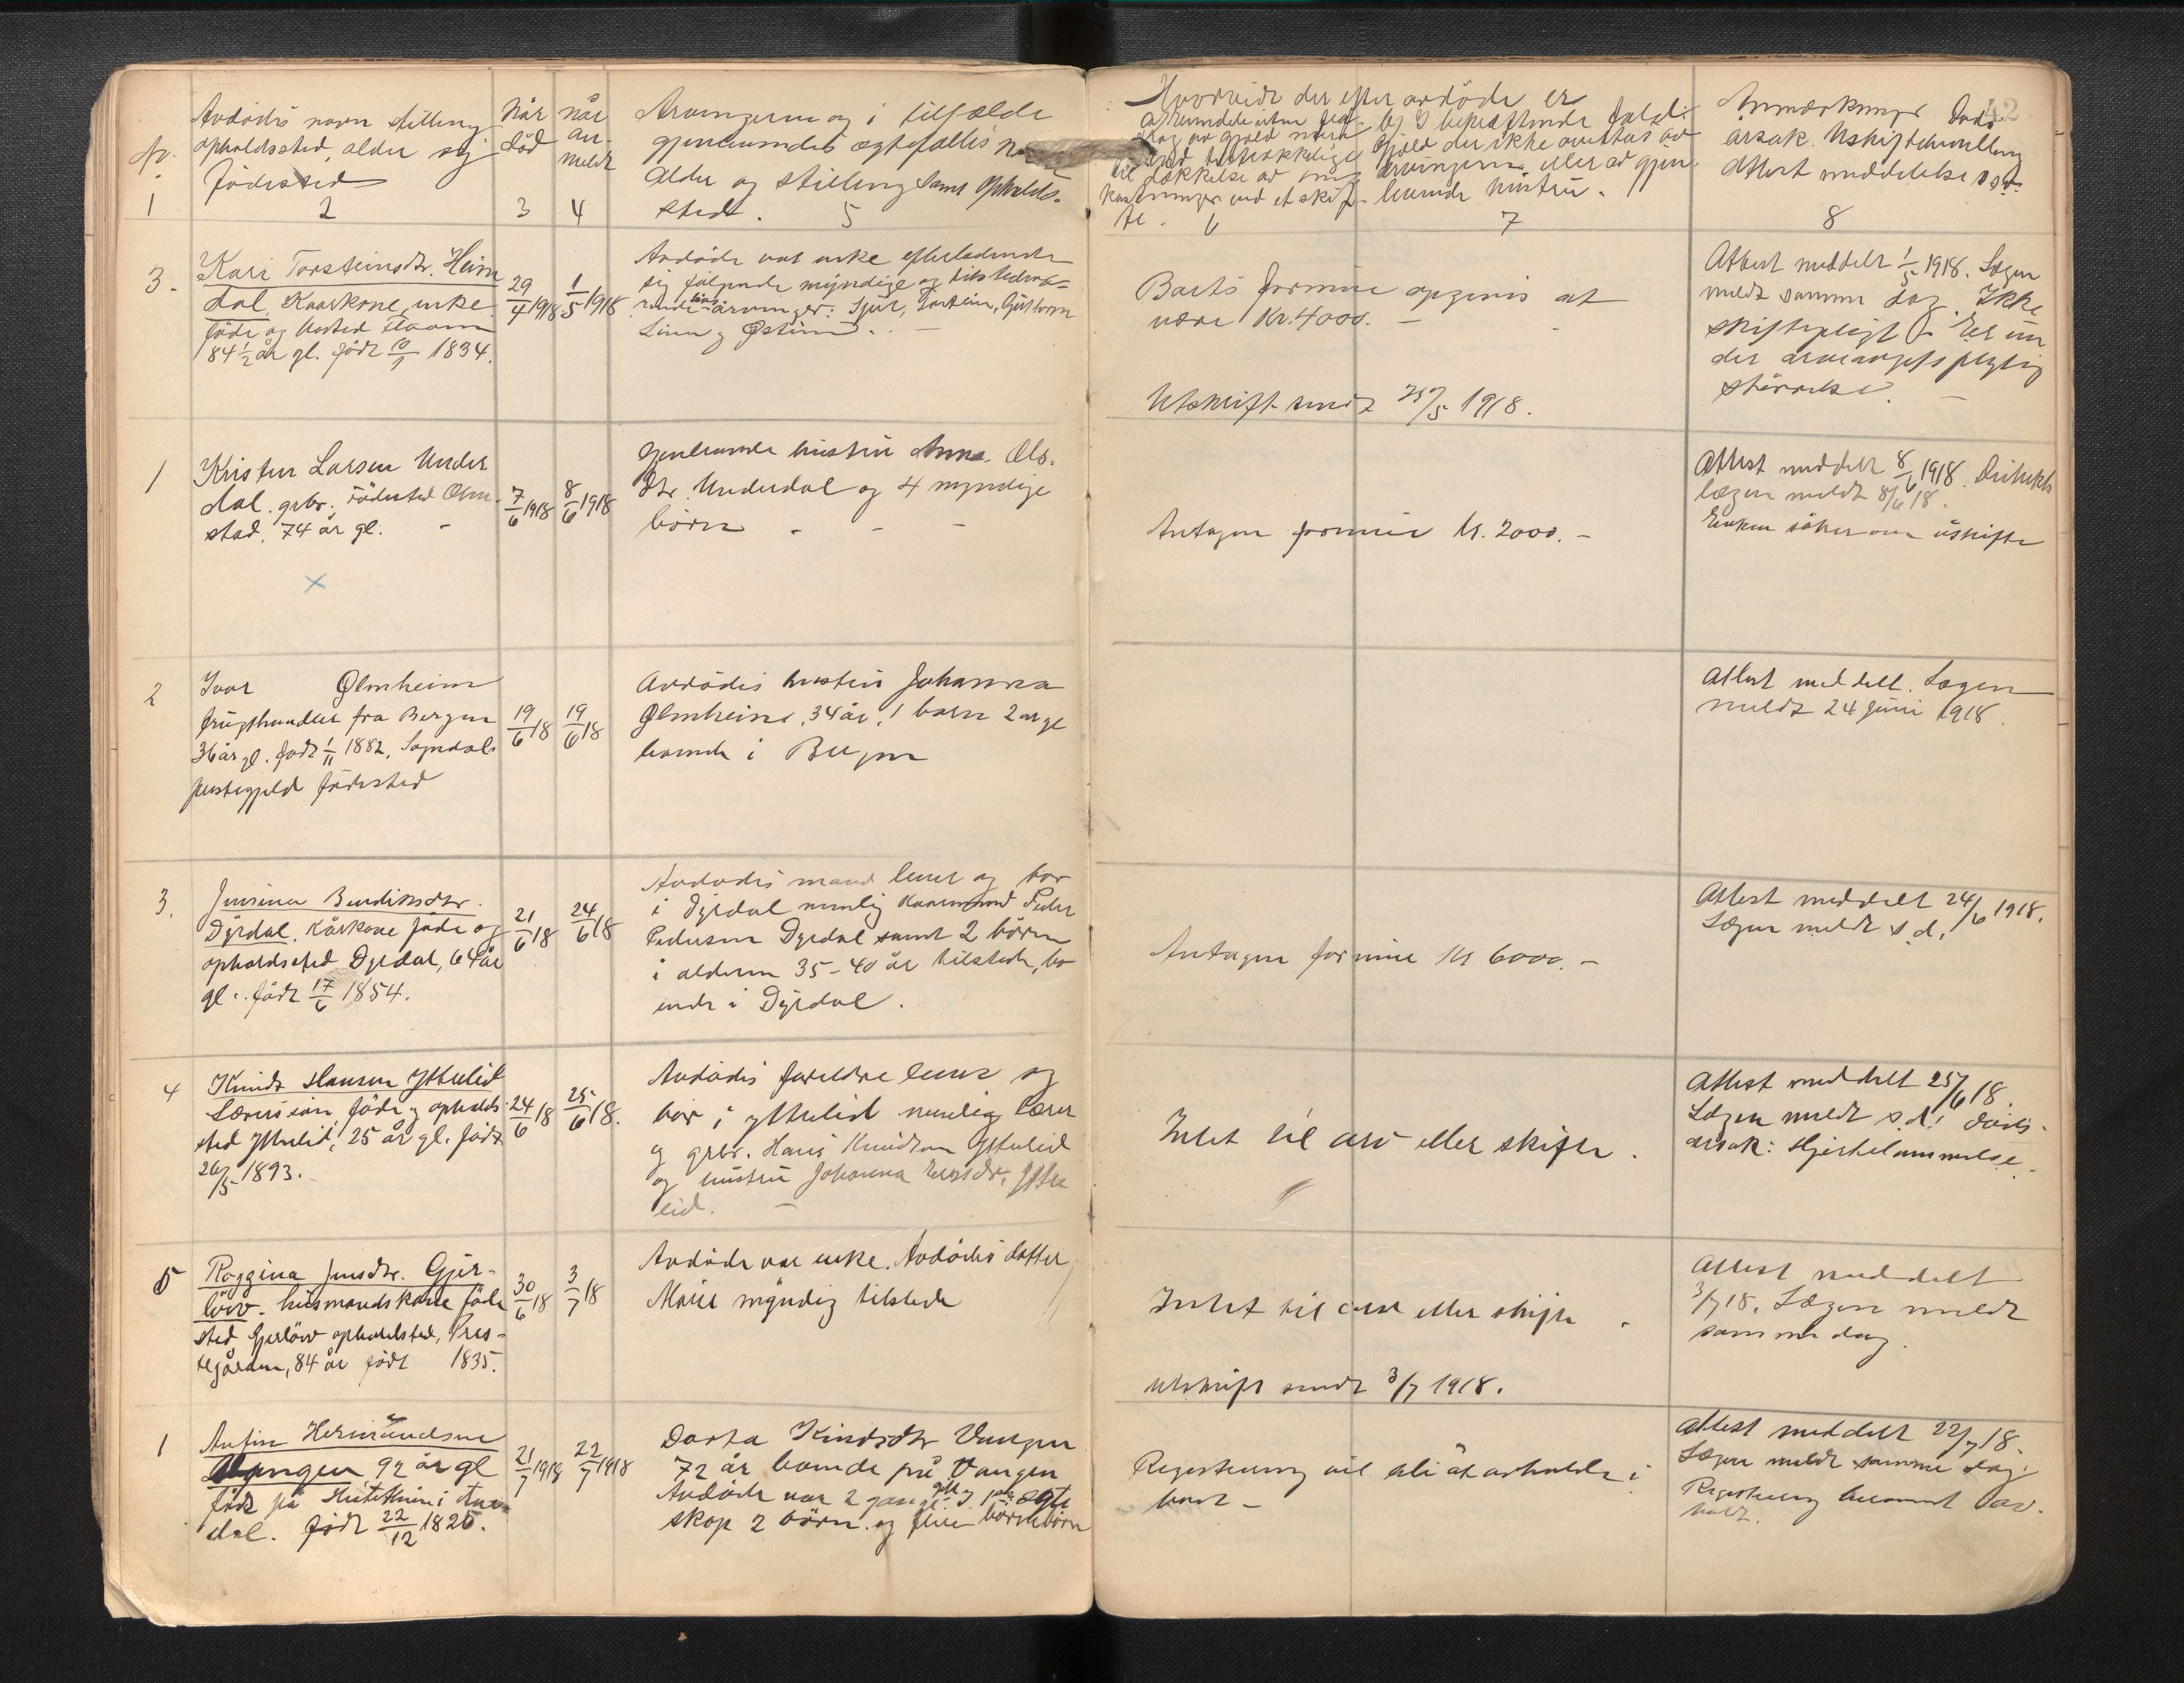 Nr.
1
Avdødes navn stilling
opholdssted, alder og
fødested
2
Når
død
3
når
an-
meldt
4
Arvingerne og i tilfælde
gjenlevendes ægtefælles navn
alder og stilling samt opholds-
sted.
5
Hvorvidt der efter avdøde er
6
7
Anmærkninger Døds
årsak. Uskiftebevilling
Attest meddelelse osv.
8
42
3.
Kari Torsteinsdtr. Heim
dal. Kaarkone, enke
føde og bosted Flaam
84 1/2 år gl. født 10/1 1834.
29/4 1918
1/5 1918
Avdøde var enke efterladende
sig følgende myndige og tilstedevæ-
rende livsarvinger: Sjur, Torstein, Guttorm
og Østein.
Boets formue opgives at
være Kr. 4000. –
Utskrift sendt 25/5 1918.
Attest meddelt 1/5 1918. Lægen
meldt samme dag. Ikke
skiftepligtig. Er un
der arveavgifs pligtig
størrelse. –
1
Kristen Larsen Under
dal. grbr. Fødested Olm-
stad, 74 år gl. –
7/6 1918
8/6 1918
gjenlevende hustru Anna Ols.
dtr. Underdal og 4 myndige
børn – – –
Antagen formue kr. 2000. –
Attest meddelt 8/6 1918. Distrikts
lægen meldt 8/6 18.
Enken søker om uskifte
2
Ivar Ølmheim
frugthandler fra Bergen
36 år gl. født 1/11 1882, Sogndals
prestegjeld fødested
19/6 18
19/6 18
Avdødes hustru Johanna
Ølmheim, 34 år, 1 barn 2 år gl
boende i Bergen
Attest meddelt. Lægen
meldt 24 juni 1918.
3.
Jensina Bendiksdtr.
Dyrdal. Kårkone føde og
opholdssted Dyrdal, 64 år
gl. født 17/6 1854.
21/6 18
24/6 18
Avdødes mand lever og bor
i Dyrdal nemlig Kaarmand Peder
Pedersen Dyrdal samt 2 børn
i alderen 35–40 år tilstede, bo
ende i Dyrdal.
Antagen formue Kr 6000. –
Attest meddelt 24/6 1918.
Lægen meldt s.d.
4
Knudt Hansen Ytreeid
Lærersøn, føde og opholds-
sted Ytreeid, 25 år gl. født
26/5 1893.
24/6 18
25/6 18.
Avdødes foreldre lever og
bor i Ytreeid nemlig Lærer
og grbr. Hans Knudsen Ytreeid
og hustru Johanna Ytre
eid. –
Intet til arv eller skifte.
Attest meddelt 25/6 18.
Lægen meldt s.d. Døds-
årsak: Hjertelammelse.
5
Raggina Jensdtr. Gjer-
løw. husmandskone føde
sted Gjerløw opholdsted, Pres-
tegården, 84 år født 1835.
30/6 18
3/7 18
Avdøde var enke. Avdødes datter
Marie myndig tilstede
Intet til arv eller skifte.
Utskrift sendt 3/7 1918.
Attest meddelt
3/7 18. Lægen meldt
samme dag.
1
Anfin Hermundsen
Vangen 92 år gl
født på i Aur-
dal. født 22/12 1826.
21/7 1918
22/7 1918
Dorta Knudsdtr Vangen
72 år boende på Vangen
Avdøde var 2 gange gift. I 1ste ægte
skap 2 børn. og flere børnebørn
Registrering vil bli at avholde i
boet –
Attest meddelt 22/7 18.
Lægen meldt samme dag.
Registrering av-
holdt.